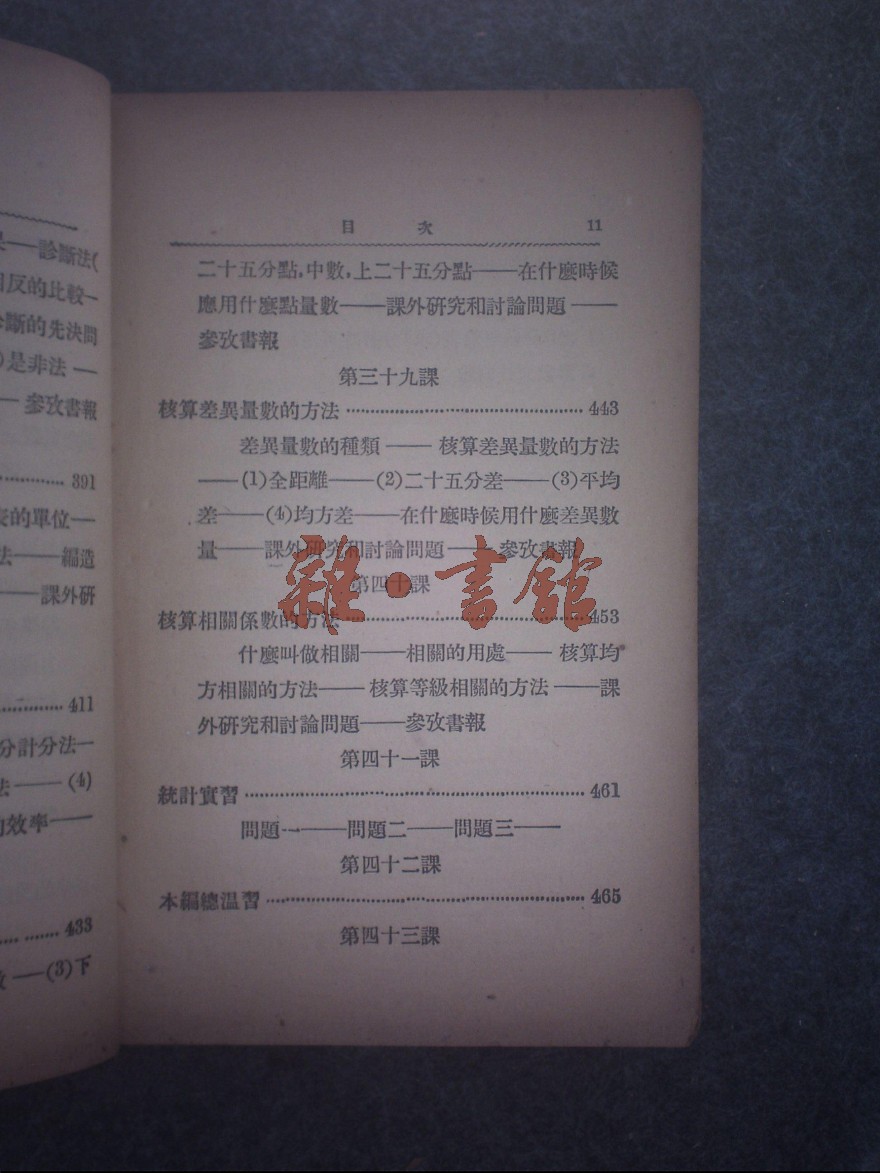 診斷法(
反的比較—
斷的先決問
是非法 —
— 參攷書報
391
的單位—
法—— 編造
——課外研
411
分計分法—
法—— (4)
效率——
433
—(3)下
目 次 11
二十五分點,中數,上二十五分點——在什麼時候
應用什麼點量數——課外研究和討論問題 ——
參攷書報
第三十九課
核算差異量數的方法 443
差異量數的種類 —— 核算差異量數的方法
——(1)全距離——(2)二十五分差——(3)平均
差——(4)均方差——在什麼時候用什麼差異數
量——課外研究和討論問題——參攷書報
第四十課
核算相關係數的方法 453
什麼叫做相關——相關的用處—— 核算均
方相關的方法—— 核算等級相關的方法 ——課
外研究和討論問題——參攷書報
第四十一課
統計實習 461
問題一——問題二——問題三——
第四十二課
本編總溫習 465
第四十三課
雜·書館